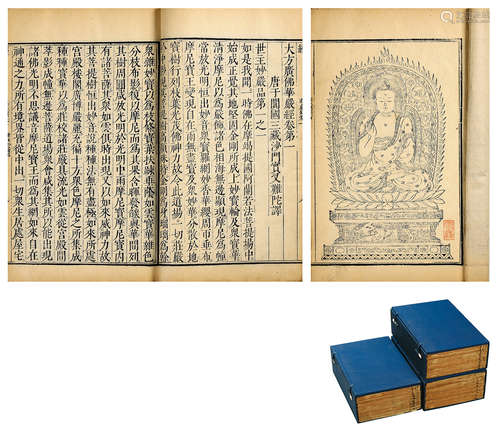 大方廣佛華嚴經卷第一
唐于闐國三藏沙門實叉難陀譯
世主妙嚴品第一之一
如是我聞一時佛在摩竭提國阿蘭若法菩提場中
始成正覺其地堅固金剛所成上妙寶輪及衆寶華
清淨摩尼以爲嚴飾諸色相海無邊顯現摩尼爲幢
常放光明恒出妙音衆寶羅網妙香華纓周帀垂布
摩尼寶王變現自在雨無盡寶及衆妙華分散於地
寶樹行列枝葉光茂佛神力故令此道場一切莊嚴
於中影現其菩提樹高顯殊特金剛爲身瑠璃爲幹
衆雜妙寶以爲枝條寶葉扶疎垂蔭如雲寶華雜色
分枝布影復以摩尼而爲其果含輝發燄與華間列
其樹周圓咸放光明於光明中雨摩尼寶摩尼寶内
有諸菩薩其衆如雲俱時出現又以如來威神力故
其菩提樹恒出妙音說種種法無有盡極如來所處
宮殿樓閣廣博嚴麗充徧十方衆色摩尼之所集成
種種寶華以爲莊校諸莊嚴具流光如雲從宮殿間
萃影成幢無邊菩薩道場衆會咸集其所以能出現
諸佛光明不思議音摩尼寶王而爲其網如來自在
神通之力所有境界皆從中出一切衆生居處屋宅